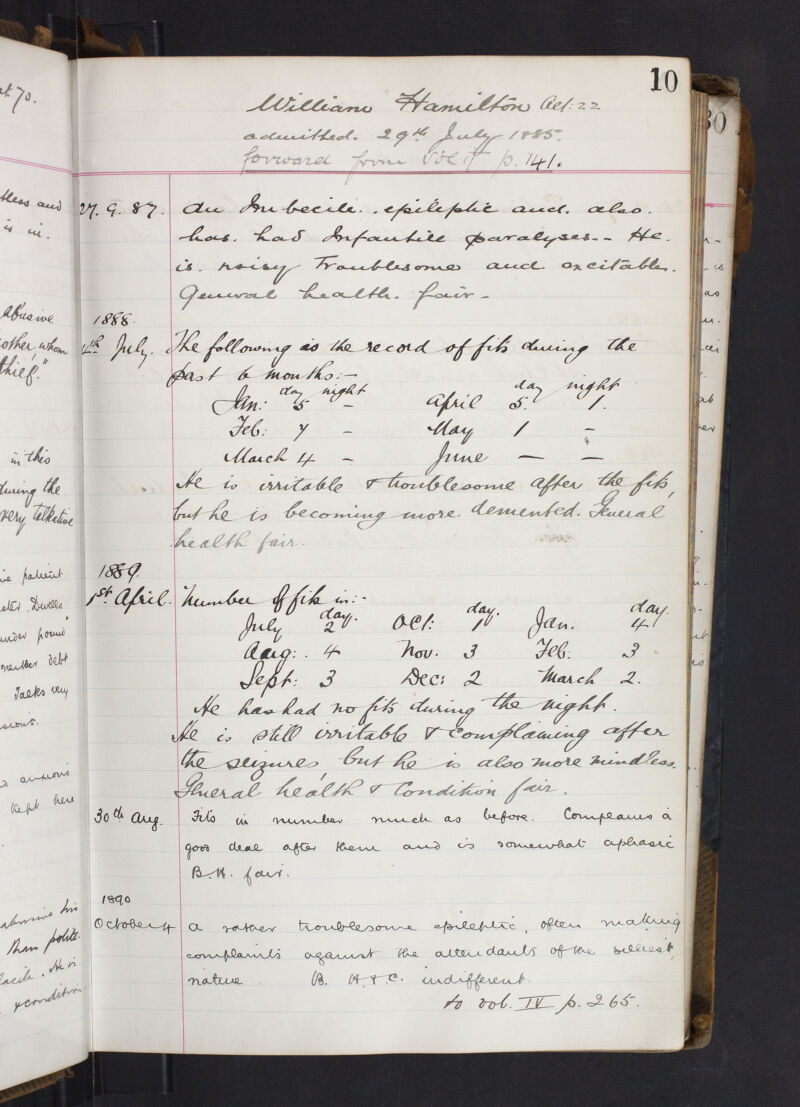 10
William Hamilton Aet: 22
admitted. 29th July 1885.
forward from Vol II p. 141.
27. 9. 87. An Imbecile. epileptic and. also.
has. had Infantile paralyses.- He.
is. noisy Troublesome and excitable.
General health. fair -
1888.
4th July. The following is the record of fits during the
past 6 months:-
day night day night
Jan: 5 - April 5. 1.
Feb: 7 - May 1 -
March 4 - June - -
He is irritable & troublesome after the fits,
but he is becoming more demented. General
health fair.
1889.
1st April. Number of fits in:-
day. day. day.
July 2 Oct: 1 Jan: 4
Aug: 4 Nov. 3 Feb: 3
Sept: 3 Dec: 2 March 2.
He has had no fits during the night.
He is still irritable & complaining after
the seizures but he is also more mindless.
General health & Condition fair.
30th Aug. Fits in number much as before. Complains a
good deal after them and is somewhat aphasic
B.H. fair.
1890
October 4 A rather troublesome epileptic, often making
complaints against the attendants of the silliest
nature. B. H. & C. indifferent.
to vol. IV p. 265.
at 70.
and
is in.
abusive
other, whom
thief."
in this
during the
very talkative
patient
Dwells
pound"
debt
Talks very
anxious
kept here
than polite.
facile. He is
& condition
30